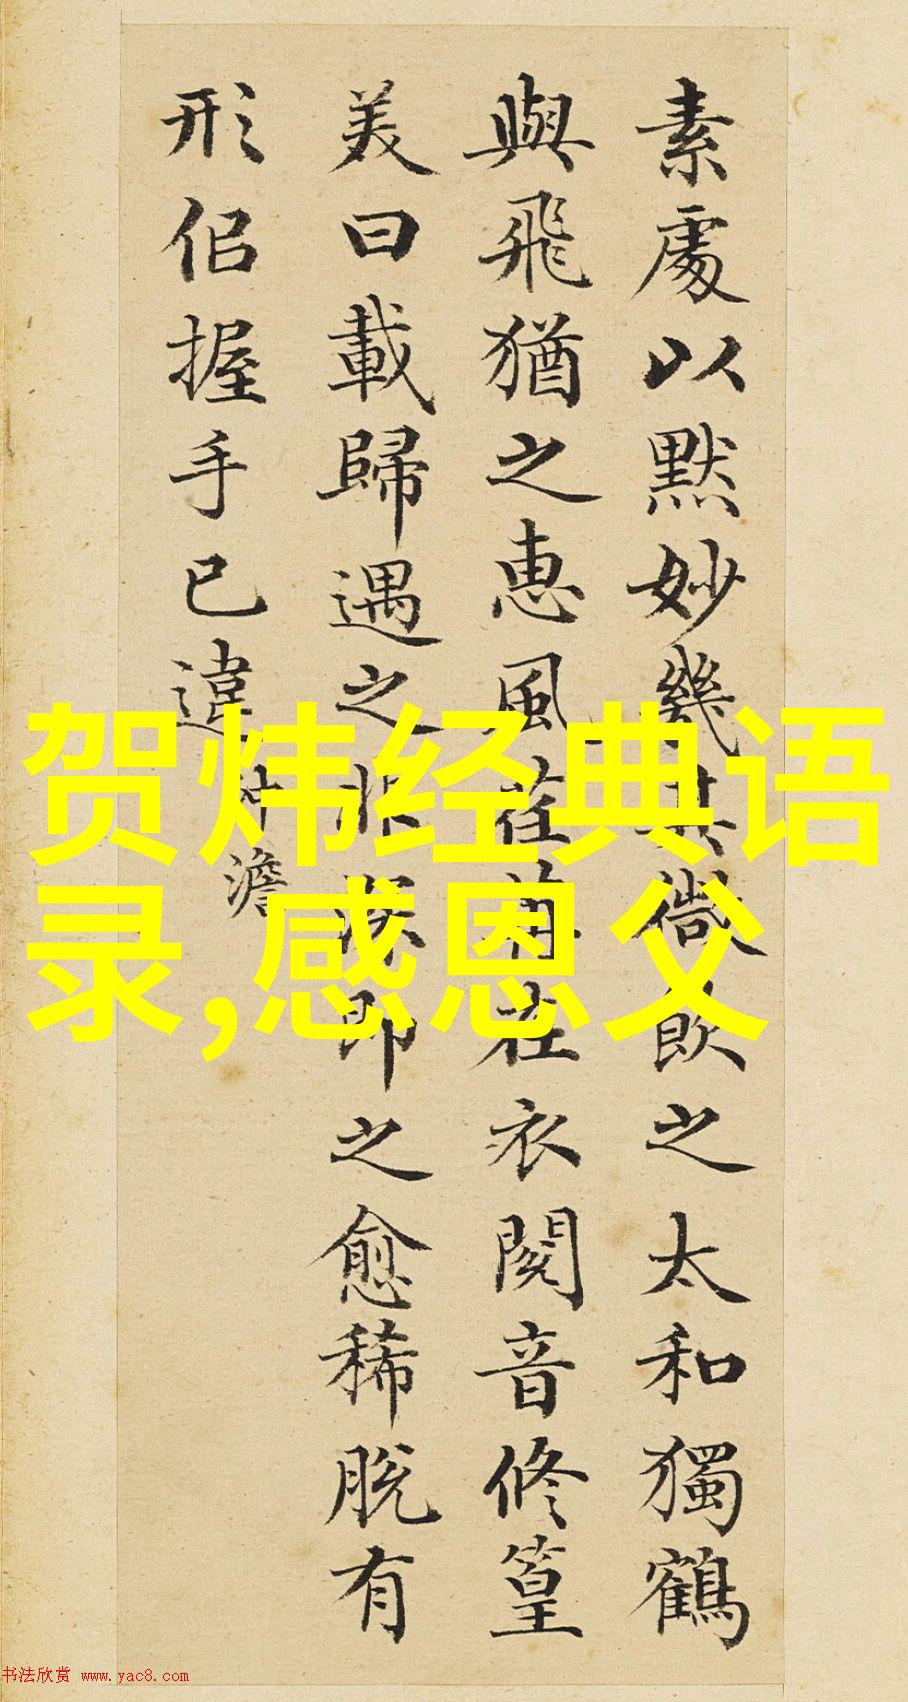 素處以默妙幾其微飲之太和獨鶴
與飛猶之惠風荏苒在衣閱音修篁
美曰載歸遇之非深即之愈稀脫有
形佀握手已違
沖澹
贺炜经典语
录,感恩父
书法欣赏 www.yac8.com